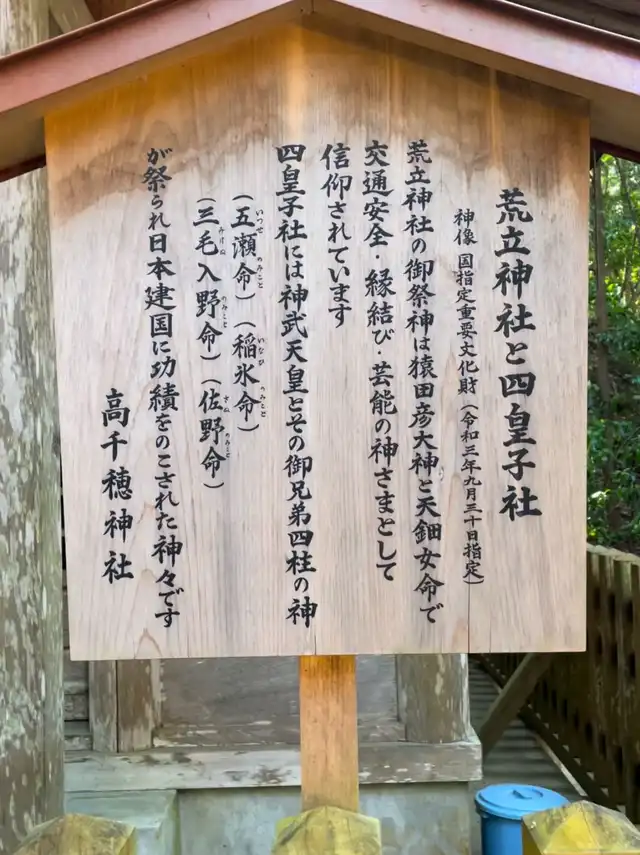 荒立神社と四皇子社
神像 国指定重要文化財(令和三年九月三十日指定)
荒立神社の御祭神は猿田彦大神と天鈿女命で
交通安全・縁結び・芸能の神さまとして
信仰されています
四皇子社には神武天皇とその御兄弟四柱の神
(五瀬命)(稲氷命)
いつせのみこと いなひのみこと
(三毛入野命)(佐野命)
みけぬのみこと さぬのみこと
が祭られ日本建国に功績をのこされた神々です
高千穂神社